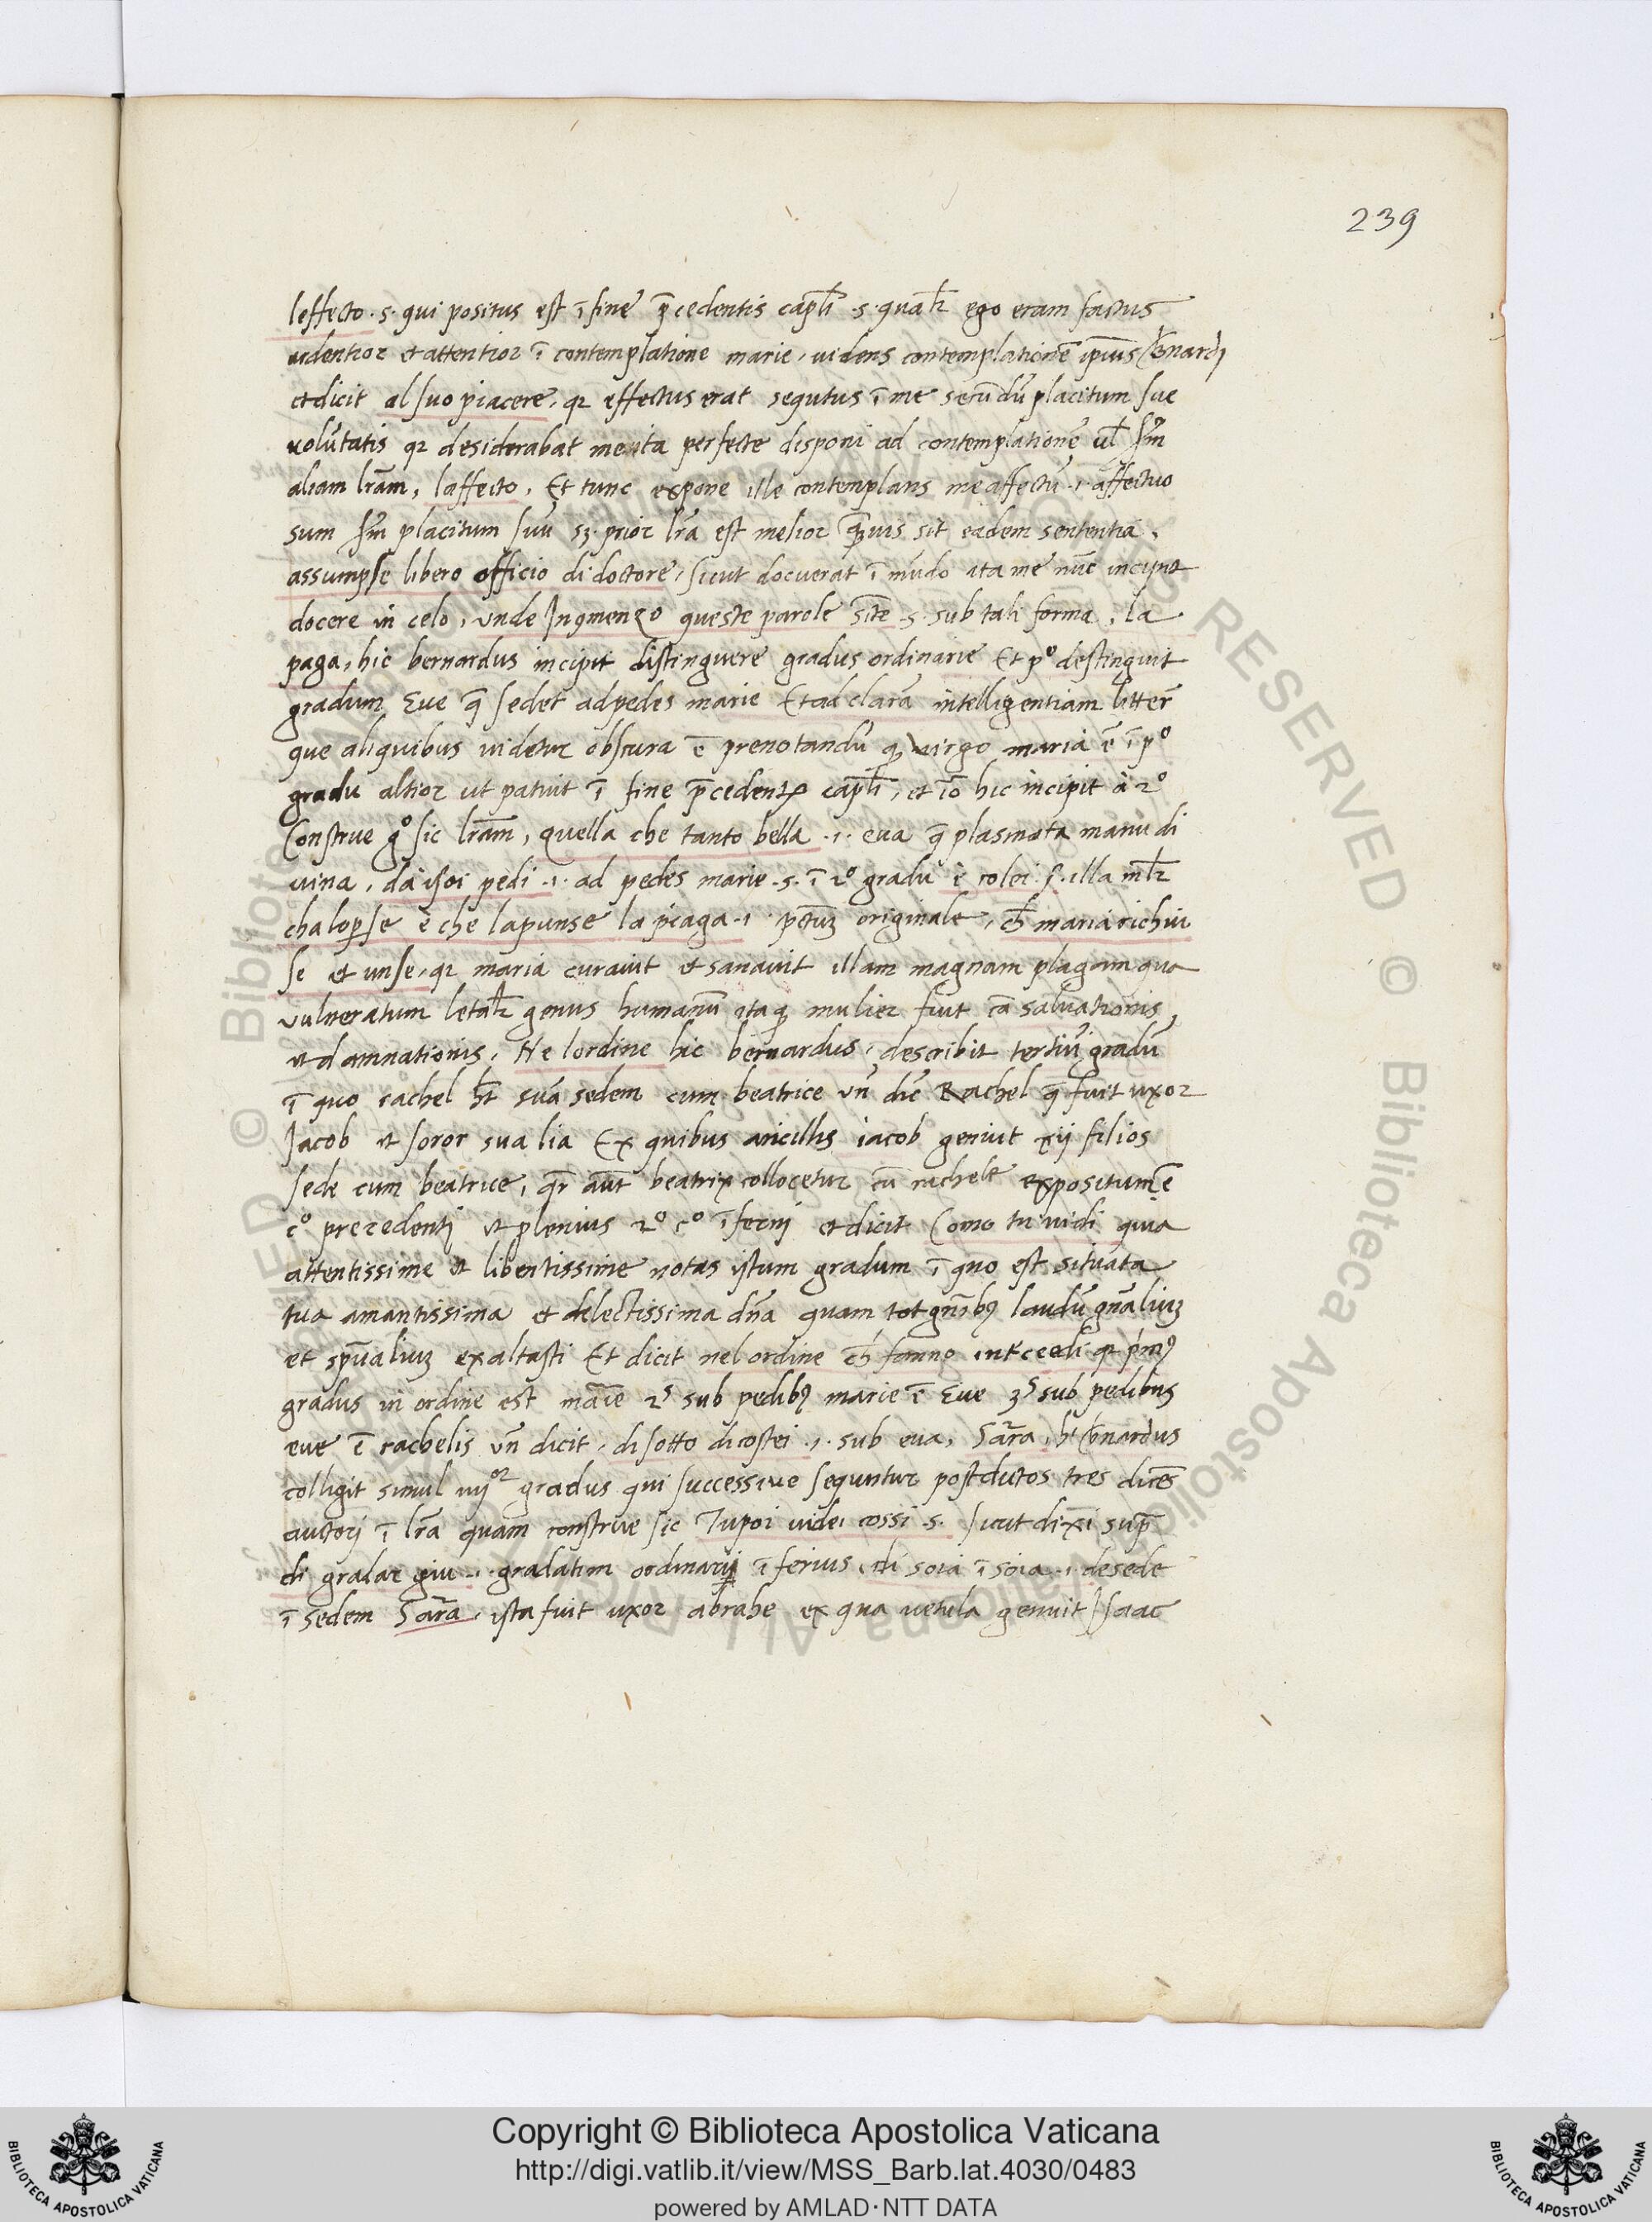 239
leffecto .s. qui positus est ī fine p̄cedentis capl̄i .s. qual̄r ego eram factus
ardentior et attentior ī contemplatione marie, uidens contemplationē ip̄ius b̄nardj
et dicit al suo piacere, qr effectus erat sequtus ī me secundū placitum sue
volūtatis qr desiderabat me ita perfecte disponi ad contemplationē ul̄ sm̄
aliam lr̄am, laffecto, Et tunc expone ille contemplans me affectū .i. affectuo
sum sm̄ placitum suū sz prior lr̄a est melior q̄uis sit eadem sententia.
assumpse libero officio di doctore, sicut docuerat ī mūdo ita me nūc incipit
docere in celo, vnde Jnqmenzo queste parole s̄tē .s. sub tali forma, la
paga, hic bernardus incipit distinguere gradus ordinarie Et p° destinguit
gradum Eue q̄ sedet ad pedes marie Et ad clarā intelligentiam litter̄
que aliquibus uidetur obscura ē prenotandū q virgo maria ē ī p°
gradu altior ut patuit ī fine p̄cedentis capl̄i, et iō hic incipit à 2°
Construe g° sic lr̄am, quella che tanto bella .i. eua q̄ plasmata manu di
uina, da isoi pedi .i. ad pedes marie .s. ī 2° gradu è colei s. illa ml̄r
cha loperse è che lapunse la piaga .i. pctū originale, ch̄ maria richiu
se et unse, qr maria curauit et sanauit illam magnam plagam qua
vulneratum letal̄r genus humanū ita q mulier fuit cā saluationis,
et damnationis, Ne lordine hic bernardus, describit tertiū gradū
ī quo rachel h̄t suā sedem cum beatrice vn̄ dic̄ Rachel q̄ fuit uxor
Jacob et soror sua lia Ex quibus ancillis iacob genuit xij filios
sede cum beatrice, qr̄ aūt beatrix collocetur cū rachele expositum ē
c° precedentj et plenius 2° c° īfernj et dicit Como tu uidi quia
attentissime et libentissime notas istum gradum ī quo est situata
tua amantissima et delectissima dn̄a quam tot gn̄ibus laudū gn̄alium
et spūalium exaltasti Et dicit nel ordine ch̄ fanno int'ceedi qr p'mus
gradus in ordine est mārie 2s sub pedibus marie ē Eue 3s sub pedibus
eue ē rachelis vn̄ dicit, di sotto di costei .i. sub eua, Sar̄a, h̄t b̄nardus
colligit simul iiijor gradus qui successiue sequntur post dictos tres dicēs
auctorj ī lr̄a quam construe sic Tu poi uidei cossi .s. sicut dixi sup̄
di gradar giu .i. gradatim ordinarij īferius, di soia ī soia .i. de sede
ī sedem Sar̄a, ista fuit uxor abrahe ex qua uetula genuit Jsaac
Copyright © Biblioteca Apostolica Vaticana
http://digi.vatlib.it/view/MSS_Barb.lat.4030/0483
powered by AMLAD·NTT DATA